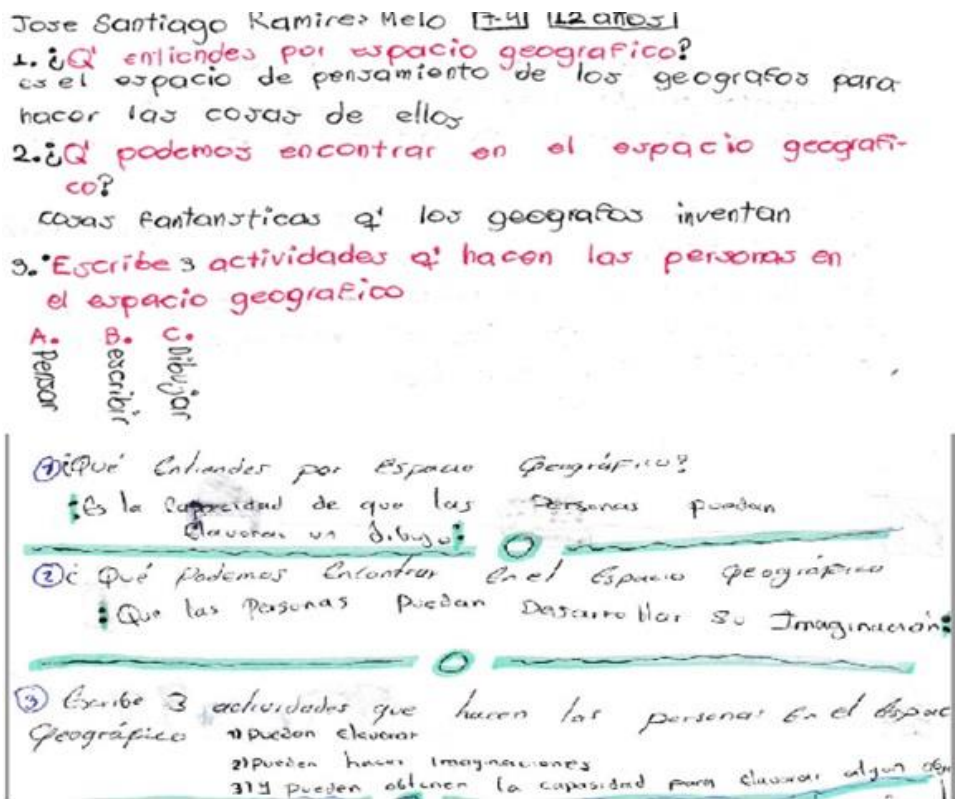 Jose Santiago Ramirez Melo 7-4 12 años
1. ¿Q' entiendes por espacio geografico?
es el espacio de pensamiento de los geografos para
hacer las cosas de ellos
2. ¿Q' podemos encontrar en el espacio geografi-
co?
cosas fantansticas q' los geografos inventan
3. Escribe 3 actividades q' hacen las personas en
el espacio geografico
A. B. C.
Pensar escribir Dibujar
① ¿Qué Entiendes por Espacio Geográfico?
:Es la Capacidad de que las Personas puedan
Elavorar un dibujo:
② ¿Qué Podemos Encontrar En el Espacio Geográfico
:Que las Personas Puedan Desarrollar Su Imaginación:
③ Escribe 3 actividades que hacen las personas En el Espac
Geográfico 1) pueden elavorar
2) pueden hacer Imaginaciones
3) y pueden obtener la capasidad para elavorar algun